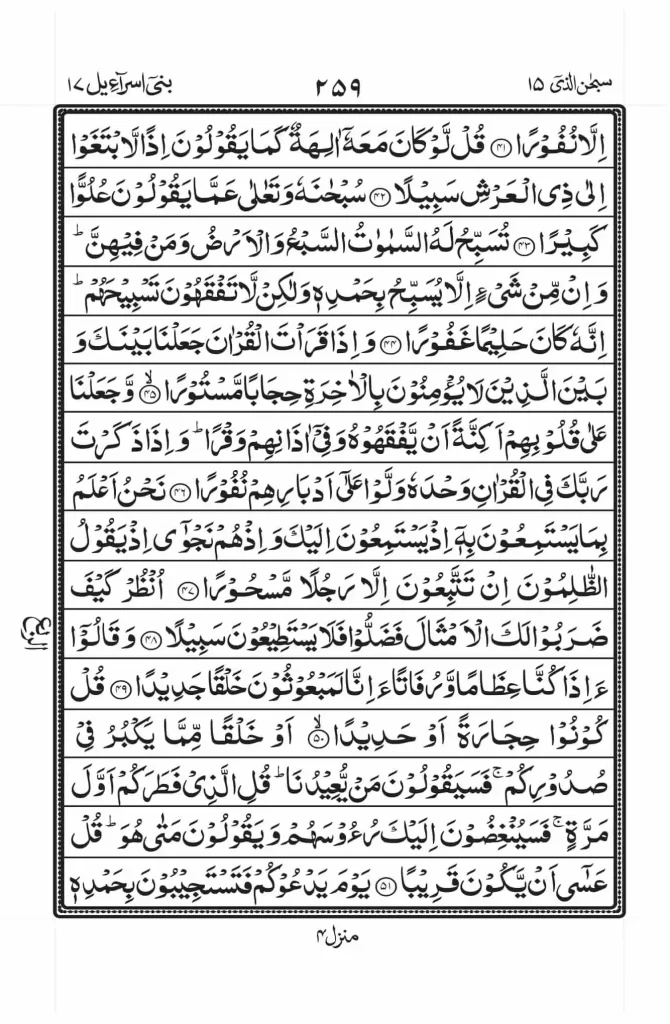 سبحٰن الذی ١٥
٢٥٩
بنی اسرآءیل ١٧
اِلَّا نُفُوْرًا ۝٤١ قُلْ لَّوْ كَانَ مَعَهٗۤ اٰلِهَةٌ كَمَا یَقُوْلُوْنَ اِذًا لَّابْتَغَوْا
اِلٰی ذِی الْعَرْشِ سَبِیْلًا ۝٤٢ سُبْحٰنَهٗ وَتَعٰلٰی عَمَّا یَقُوْلُوْنَ عُلُوًّا
كَبِیْرًا ۝٤٣ تُسَبِّحُ لَهُ السَّمٰوٰتُ السَّبْعُ وَالْاَرْضُ وَمَنْ فِیْهِنَّ ؕ
وَاِنْ مِّنْ شَیْءٍ اِلَّا یُسَبِّحُ بِحَمْدِهٖ وَلٰكِنْ لَّا تَفْقَهُوْنَ تَسْبِیْحَهُمْ ؕ
اِنَّهٗ كَانَ حَلِیْمًا غَفُوْرًا ۝٤٤ وَاِذَا قَرَاْتَ الْقُرْاٰنَ جَعَلْنَا بَیْنَكَ وَ
بَیْنَ الَّذِیْنَ لَا یُؤْمِنُوْنَ بِالْاٰخِرَةِ حِجَابًا مَّسْتُوْرًا ۝٤٥ۙ وَّجَعَلْنَا
عَلٰی قُلُوْبِهِمْ اَكِنَّةً اَنْ یَّفْقَهُوْهُ وَفِیْۤ اٰذَانِهِمْ وَقْرًا ؕ وَاِذَا ذَكَرْتَ
رَبَّكَ فِی الْقُرْاٰنِ وَحْدَهٗ وَلَّوْا عَلٰۤی اَدْبَارِهِمْ نُفُوْرًا ۝٤٦ نَحْنُ اَعْلَمُ
بِمَا یَسْتَمِعُوْنَ بِهٖۤ اِذْ یَسْتَمِعُوْنَ اِلَیْكَ وَاِذْ هُمْ نَجْوٰۤی اِذْ یَقُوْلُ
الظّٰلِمُوْنَ اِنْ تَتَّبِعُوْنَ اِلَّا رَجُلًا مَّسْحُوْرًا ۝٤٧ اُنْظُرْ كَیْفَ
ضَرَبُوْا لَكَ الْاَمْثَالَ فَضَلُّوْا فَلَا یَسْتَطِیْعُوْنَ سَبِیْلًا ۝٤٨ وَقَالُوْۤا
ءَاِذَا كُنَّا عِظَامًا وَّرُفَاتًا ءَاِنَّا لَمَبْعُوْثُوْنَ خَلْقًا جَدِیْدًا ۝٤٩ قُلْ
كُوْنُوْا حِجَارَةً اَوْ حَدِیْدًا ۝٥٠ۙ اَوْ خَلْقًا مِّمَّا یَكْبُرُ فِیْ
صُدُوْرِكُمْ ۚ فَسَیَقُوْلُوْنَ مَنْ یُّعِیْدُنَا ؕ قُلِ الَّذِیْ فَطَرَكُمْ اَوَّلَ
مَرَّةٍ ۚ فَسَیُنْغِضُوْنَ اِلَیْكَ رُءُوْسَهُمْ وَیَقُوْلُوْنَ مَتٰی هُوَ ؕ قُلْ
عَسٰۤی اَنْ یَّكُوْنَ قَرِیْبًا ۝٥١ یَوْمَ یَدْعُوْكُمْ فَتَسْتَجِیْبُوْنَ بِحَمْدِهٖ
الربع
منزل ٤